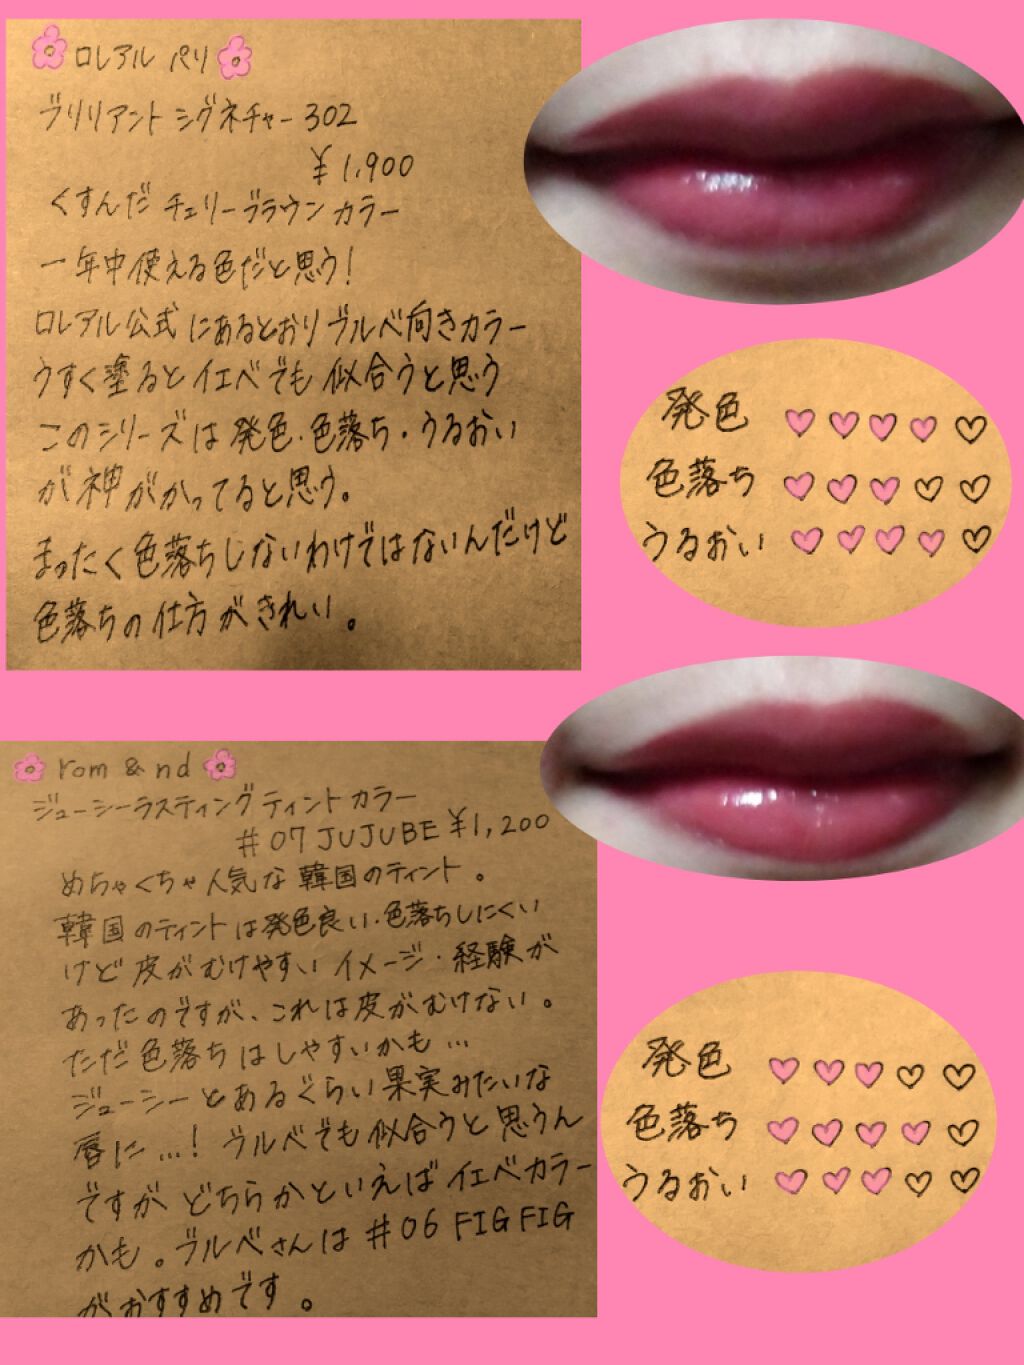 ロレアル パリ
ブリリアント シグネチャー 302
¥1,900
くすんだ チェリーブラウン カラー
一年中使える色だと思う!
ロレアル公式 にあるとおりブルベ向きカラー
うすく塗るとイエベでも 似合うと思う
このシリーズは 発色・色落ち・うるおい
が 神がかってると思う。
まったく色落ちしないわけではないんだけど
色落ちの仕方がきれい。
発色 ♡♡♡♡♡
色落ち ♡♡♡♡♡
うるおい ♡♡♡♡♡
rom & nd
ジューシーラスティング ティント カラー
#07 JUJUBE ¥1,200
めちゃくちゃ人気な 韓国のティント。
韓国のティントは発色良い・色落ちしにくい
けど 皮がむけやすい イメージ・経験が
あったのですが、これは皮がむけない。
ただ 色落ちはしやすいかも…
ジューシーとあるぐらい果実みたいな
唇に…! ブルベでも似合うと思うん
ですが どちらかといえば イエベカラー
かも。ブルベさんは #06 FIG FIG
がおすすめです。
発色 ♡♡♡♡♡
色落ち ♡♡♡♡♡
うるおい ♡♡♡♡♡